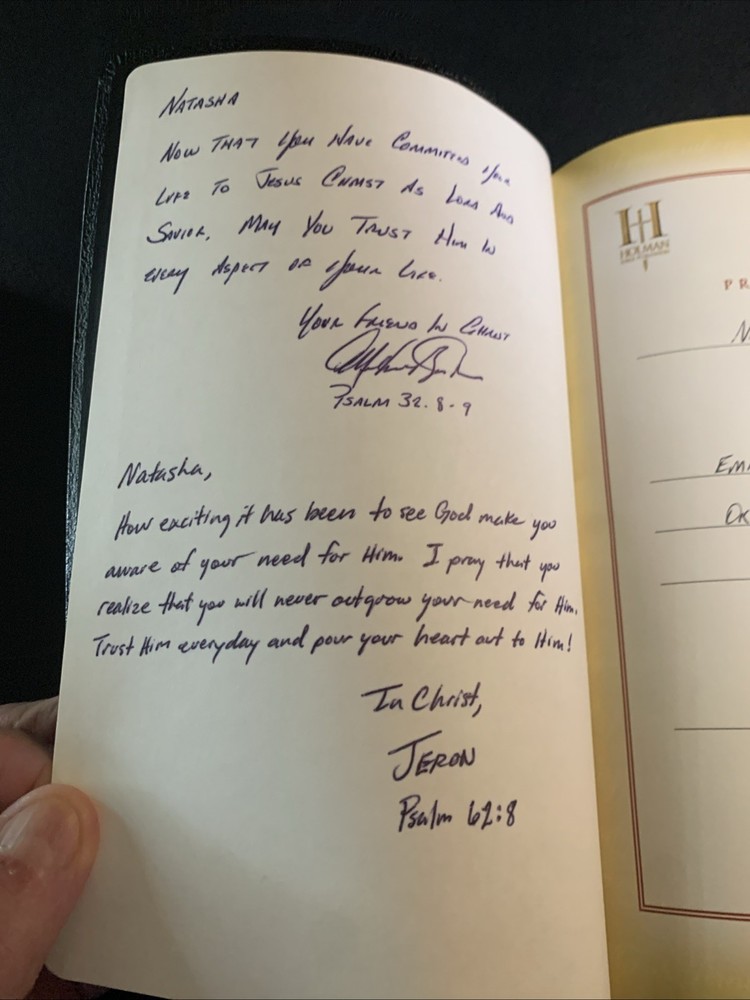 NATASHA
NOW THAT YOU HAVE COMMITTED YOUR
LIFE TO JESUS CHRIST AS LORD AND
SAVIOR, MAY YOU TRUST HIM IN
EVERY ASPECT OF YOUR LIFE.
YOUR FRIEND IN CHRIST
PSALM 32.8-9
Natasha,
How exciting it has been to see God make you
aware of your need for Him. I pray that you
realize that you will never outgrow your need for Him.
Trust Him everyday and pour your heart out to Him!
In Christ,
JERON
Psalm 62:8
H
HOLMAN
PR
N
EM
OK